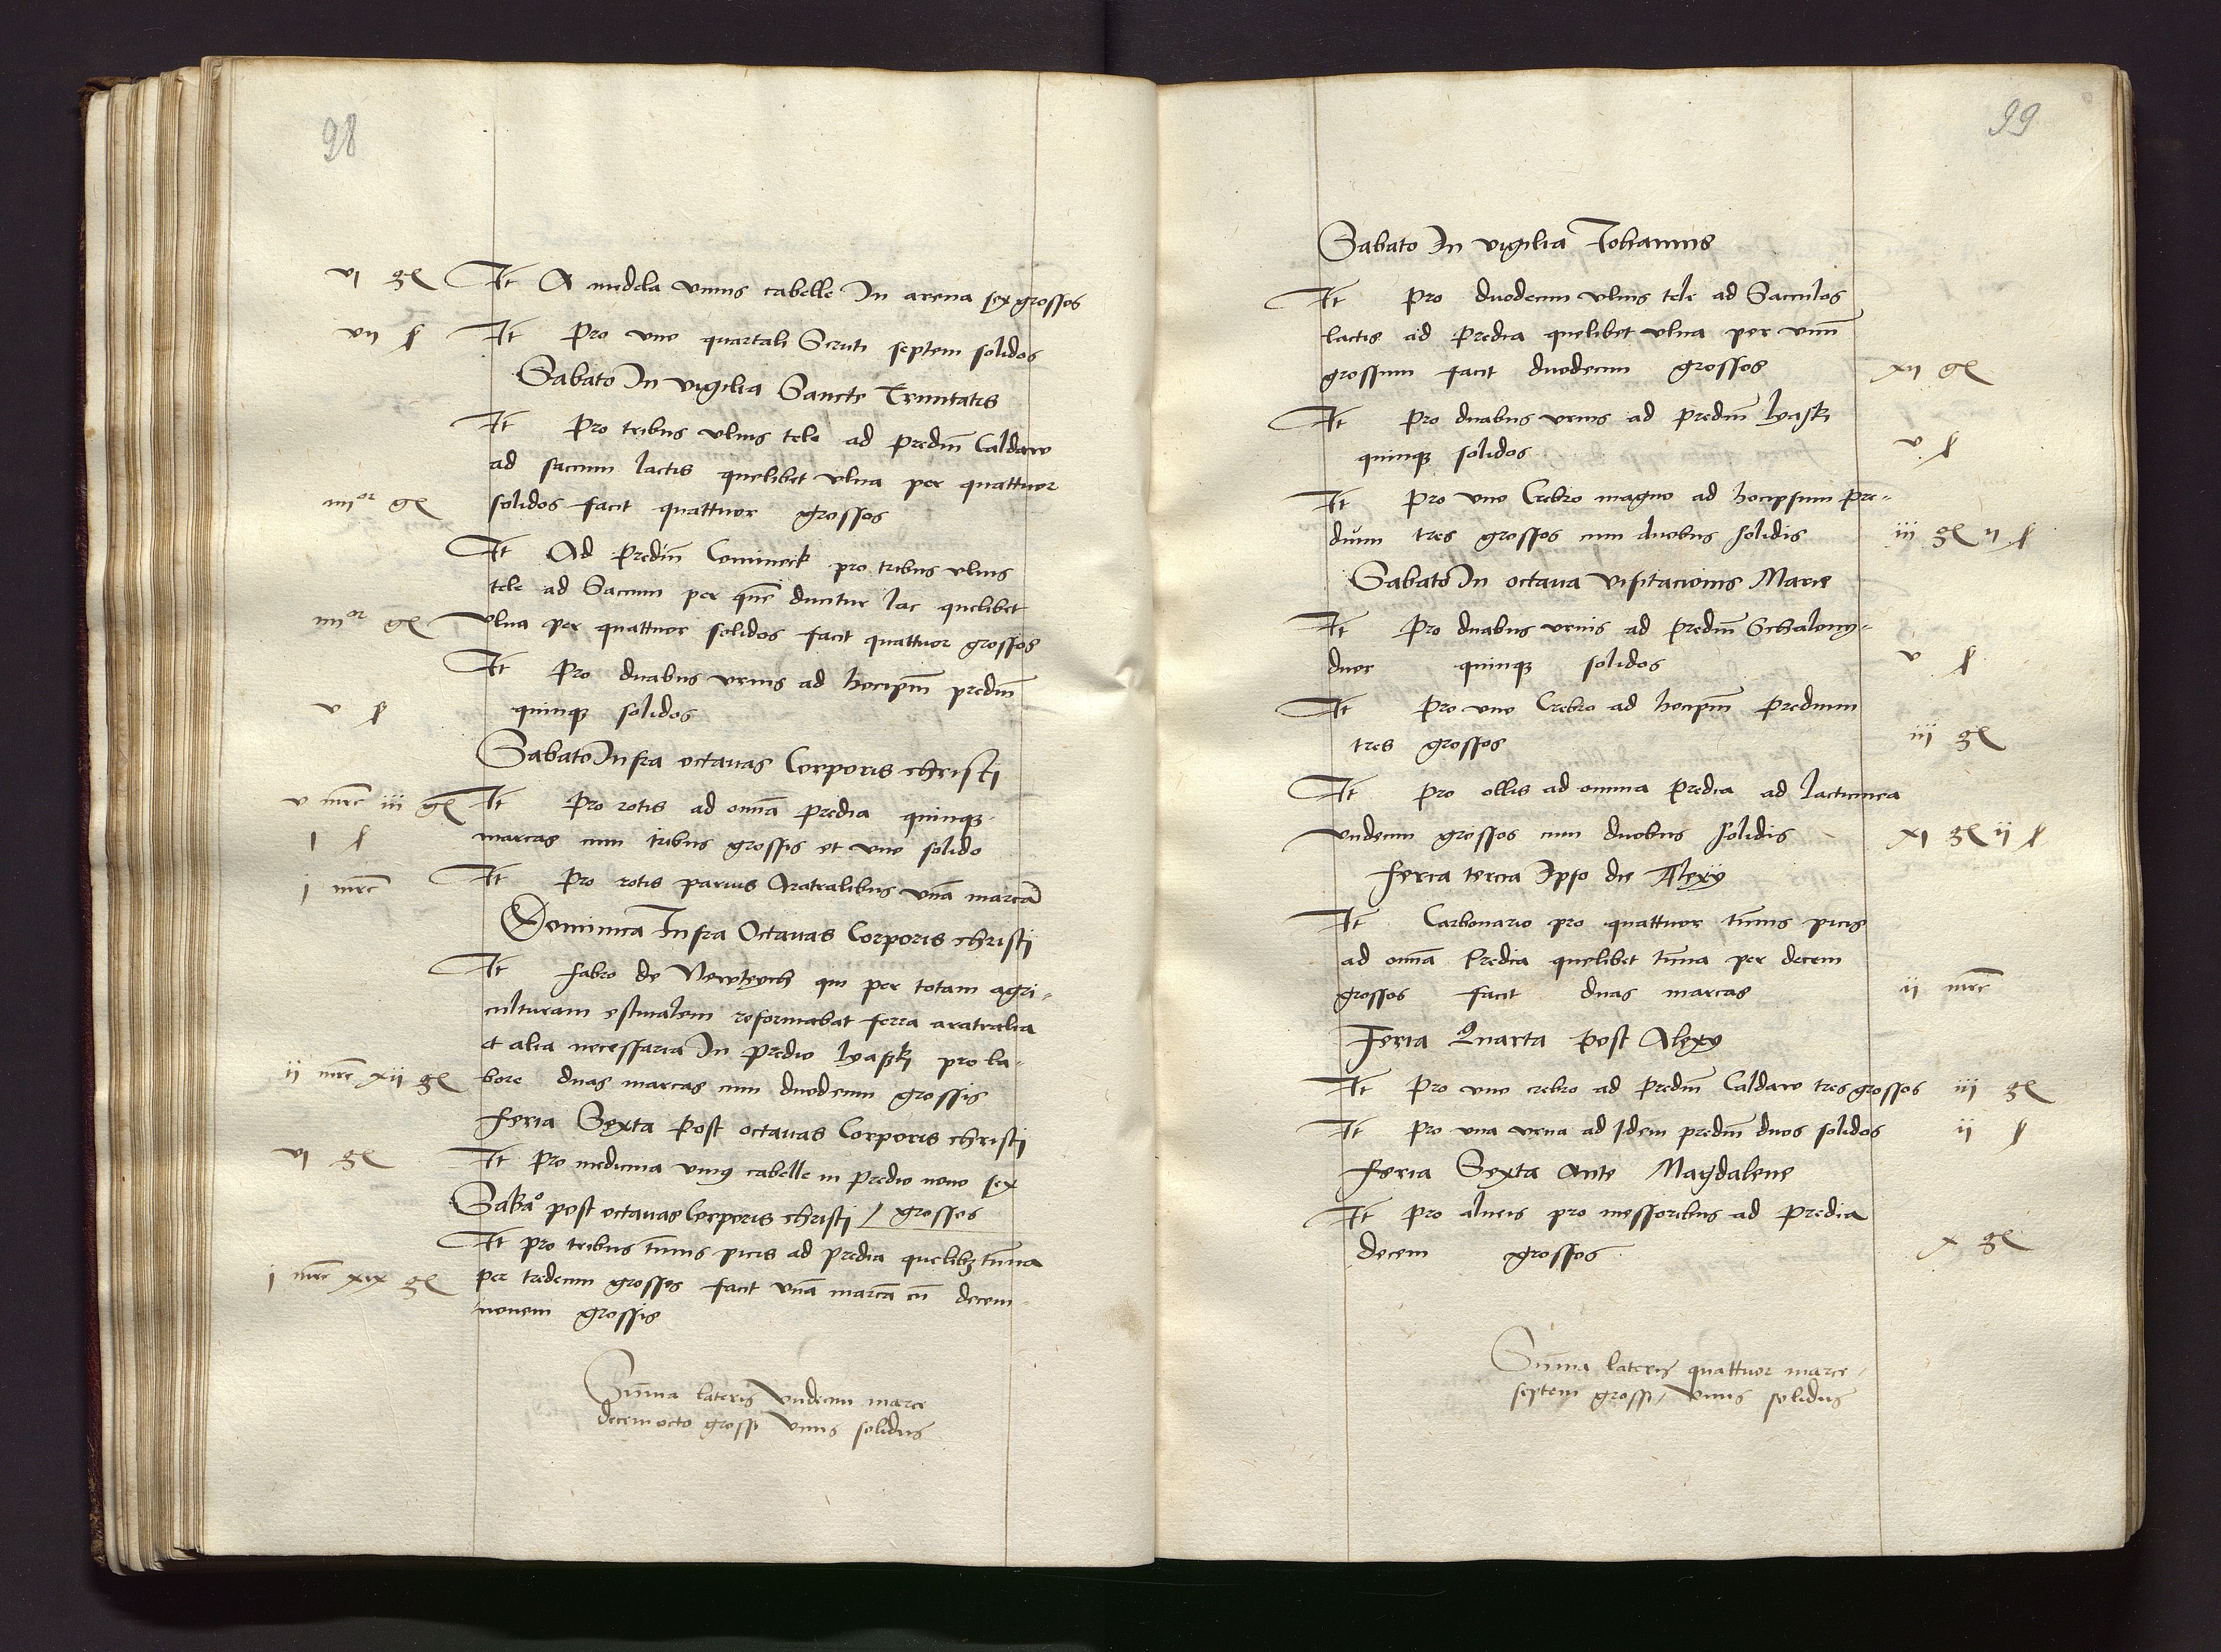 98
vi gℓ It A medela vnius cabelle In arena sex grossos
vii ß It pro vno quartali Scruti septem solidos
Sabato In vigilia Sancte Trinitatis
It pro tribus vlnis tele ad prediū Caldaw
ad saccum lactis quelibet vlna per quattuor
iiiior gℓ solidos facit quattuor grossos
It Ad prediū Comineck pro tribus vlnis
tele ad Saccum per quē ducitur lac quelibet
iiiior gℓ vlna per quattuor solidos facit quattuor grossos
It pro duabus vrnis ad hocipm̄ prediū
v ß quinqȝ solidos
Sabato Infra octauas Corporis christi
v mrc iii gℓ It pro rotis ad om̄a predia quinqȝ
i ß marcas cum tribus grossis et vno solido
i mrc It pro rotis paruis Aratralibus vnā marcā
Dominica Infra Octauas Corporis christi
It fabro de Newteych qui per totam agri-
culturam estiualem reformabat ferra aratralia
et alia necessaria In predio lyaßki pro la-
ii mrc xii gℓ bore duas marcas cum duodecim grossis
feria Sexta Post octauas Corporis christi
vi gℓ It pro medicina vniꝰ cabelle in predio nouo sex
Sabato post octauas Corporis christi / grossos
It pro tribus tūnis picis ad predia quelibȝ tūna
i mrc xix gℓ per tredecim grossos facit vnā marcā cū decem-
nouem grossis
Sūma lateris Vndecim marce
decemocto grossi Vnus solidus
99
Sabato In vigilia Johannis
It pro duodecim vlnis tele ad Sacculos
lactis ad predia quelibet vlna per vnū
grossum facit duodecim grossos xii gℓ
It pro duabus vrnis ad prediū lyaßki
quinqȝ solidos v ß
It pro vno Crebro magno ad hocipsum pre-
dium tres grossos cum duobus solidis iii gℓ ii ß
Sabato In octaua visitacionis Marie
It pro duabus vrnis ad prediū Schalony-
duor quinqȝ solidos v ß
It pro vno Crebro ad hocipm̄ predium
tres grossos iii gℓ
It pro ollis ad omnia predia ad lacticinia
vndecim grossos cum duobus solidis xi gℓ ii ß
feria tercia Ipso die Alexÿ
It Carbonario pro quattuor tūnis picis
ad om̄a predia quelibet tūna per decem
grossos facit duas marcas ii mrc
Feria Quarta Post Alexÿ
It pro vno crebro ad prediū Caldaw tres grossos iii gℓ
It pro vna vrna ad Idem prediū duos solidos ii ß
feria Sexta Ante Magdalene
It pro alueis pro messoribus ad predia
decem grossos x gℓ
Sūma lateris quattuor marce /
septem grossi / Vnus solidus